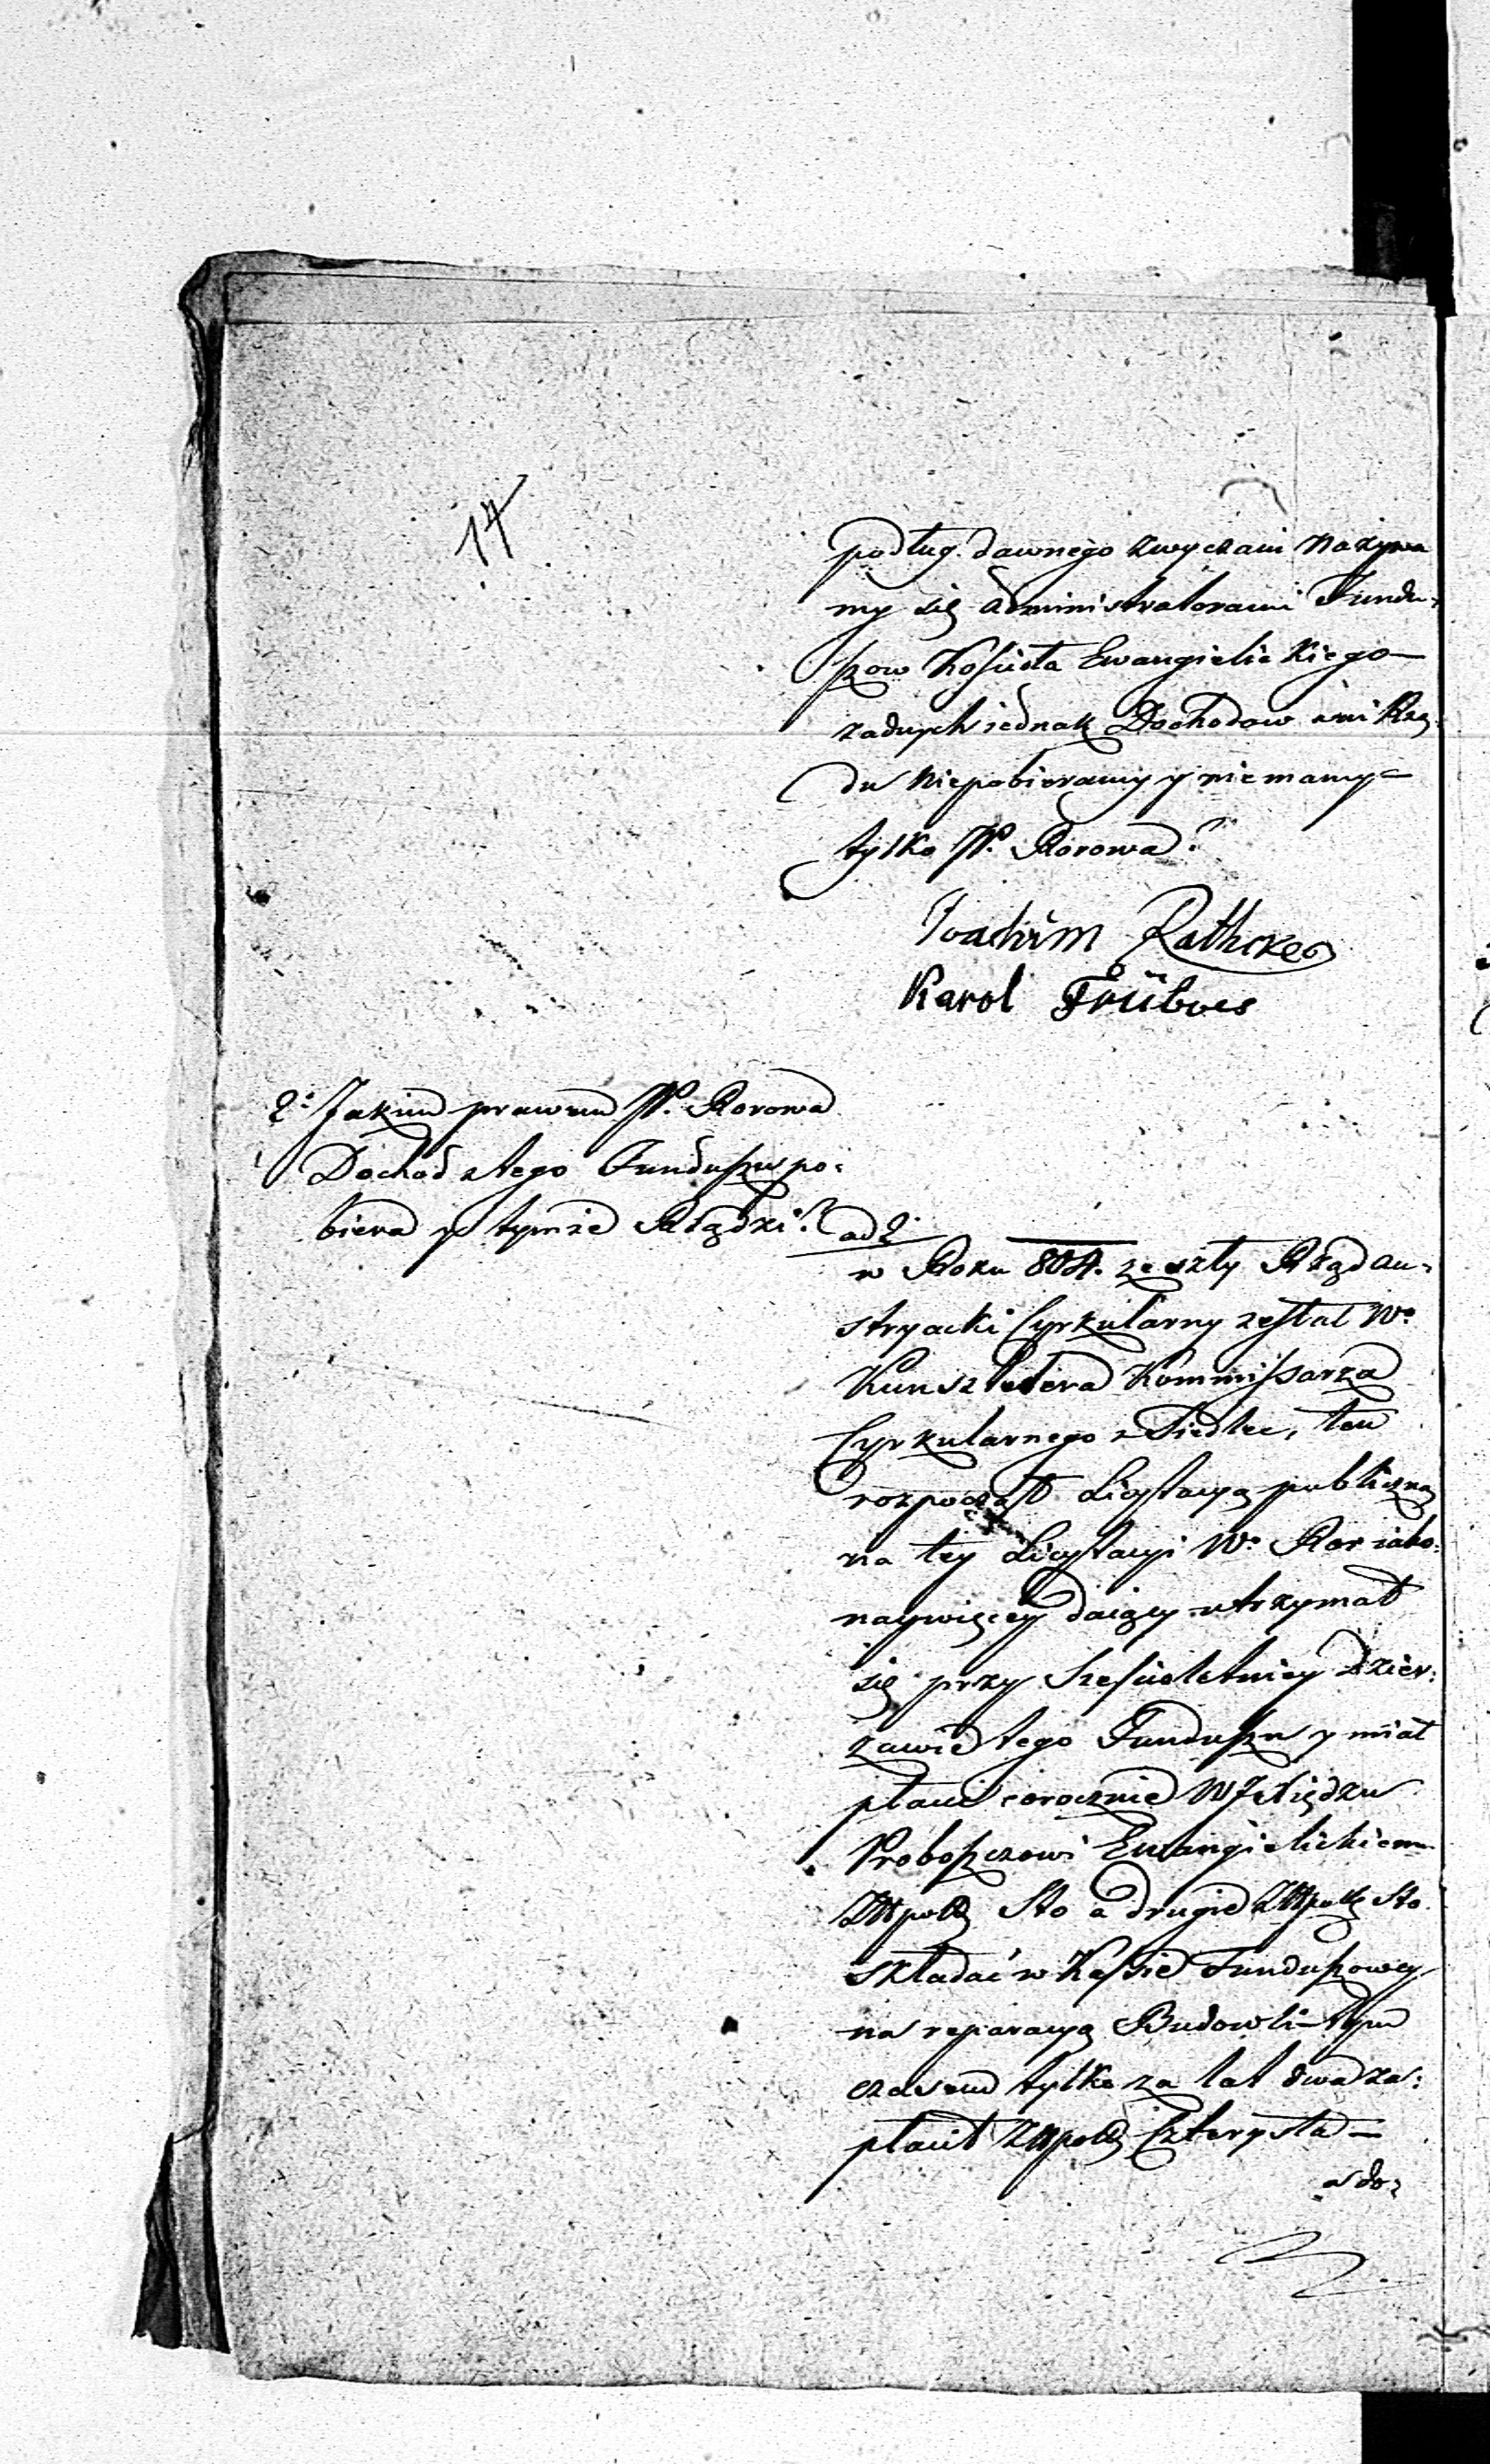 14
podług dawnego zwyczaiu nazywa
my się administratorami Fundu-
szow Kościoła Ewangielickiego —
żadnych iednak Dochodow ani Rzą-
du niepobieramy y niemamy =
tylko W. Rorowa.
Joachim Rathcke
Karol
2° Jakim prawem W. Rorowa
Dochod z tego Funduszu po-
biera y tymże Rządzi?
ad 2°
w Roku 804. zeszły Rząd Au-
stryacki Cyrkularny zesłał W°
Kommissarza
Cyrkularnego z Siedlec, ten
rozpoczął Licytacyą publiczną
na tey Licytacyi W° Ror iako
naywięcey daiący utrzymał
się przy Sześcioletniey Dzier-
żawie tego Funduszu y miał
płacić corocznie W Xiędzu
Proboszczowi Ewangielickiemu
Złłpolls Sto a drugie Złłpolls Sto
składać w Kassie Funduszowey
na reparacyą Budowli — tym
czasem tylko za lat dwa za-
płacił Złłpolls Czterysta —
a do-